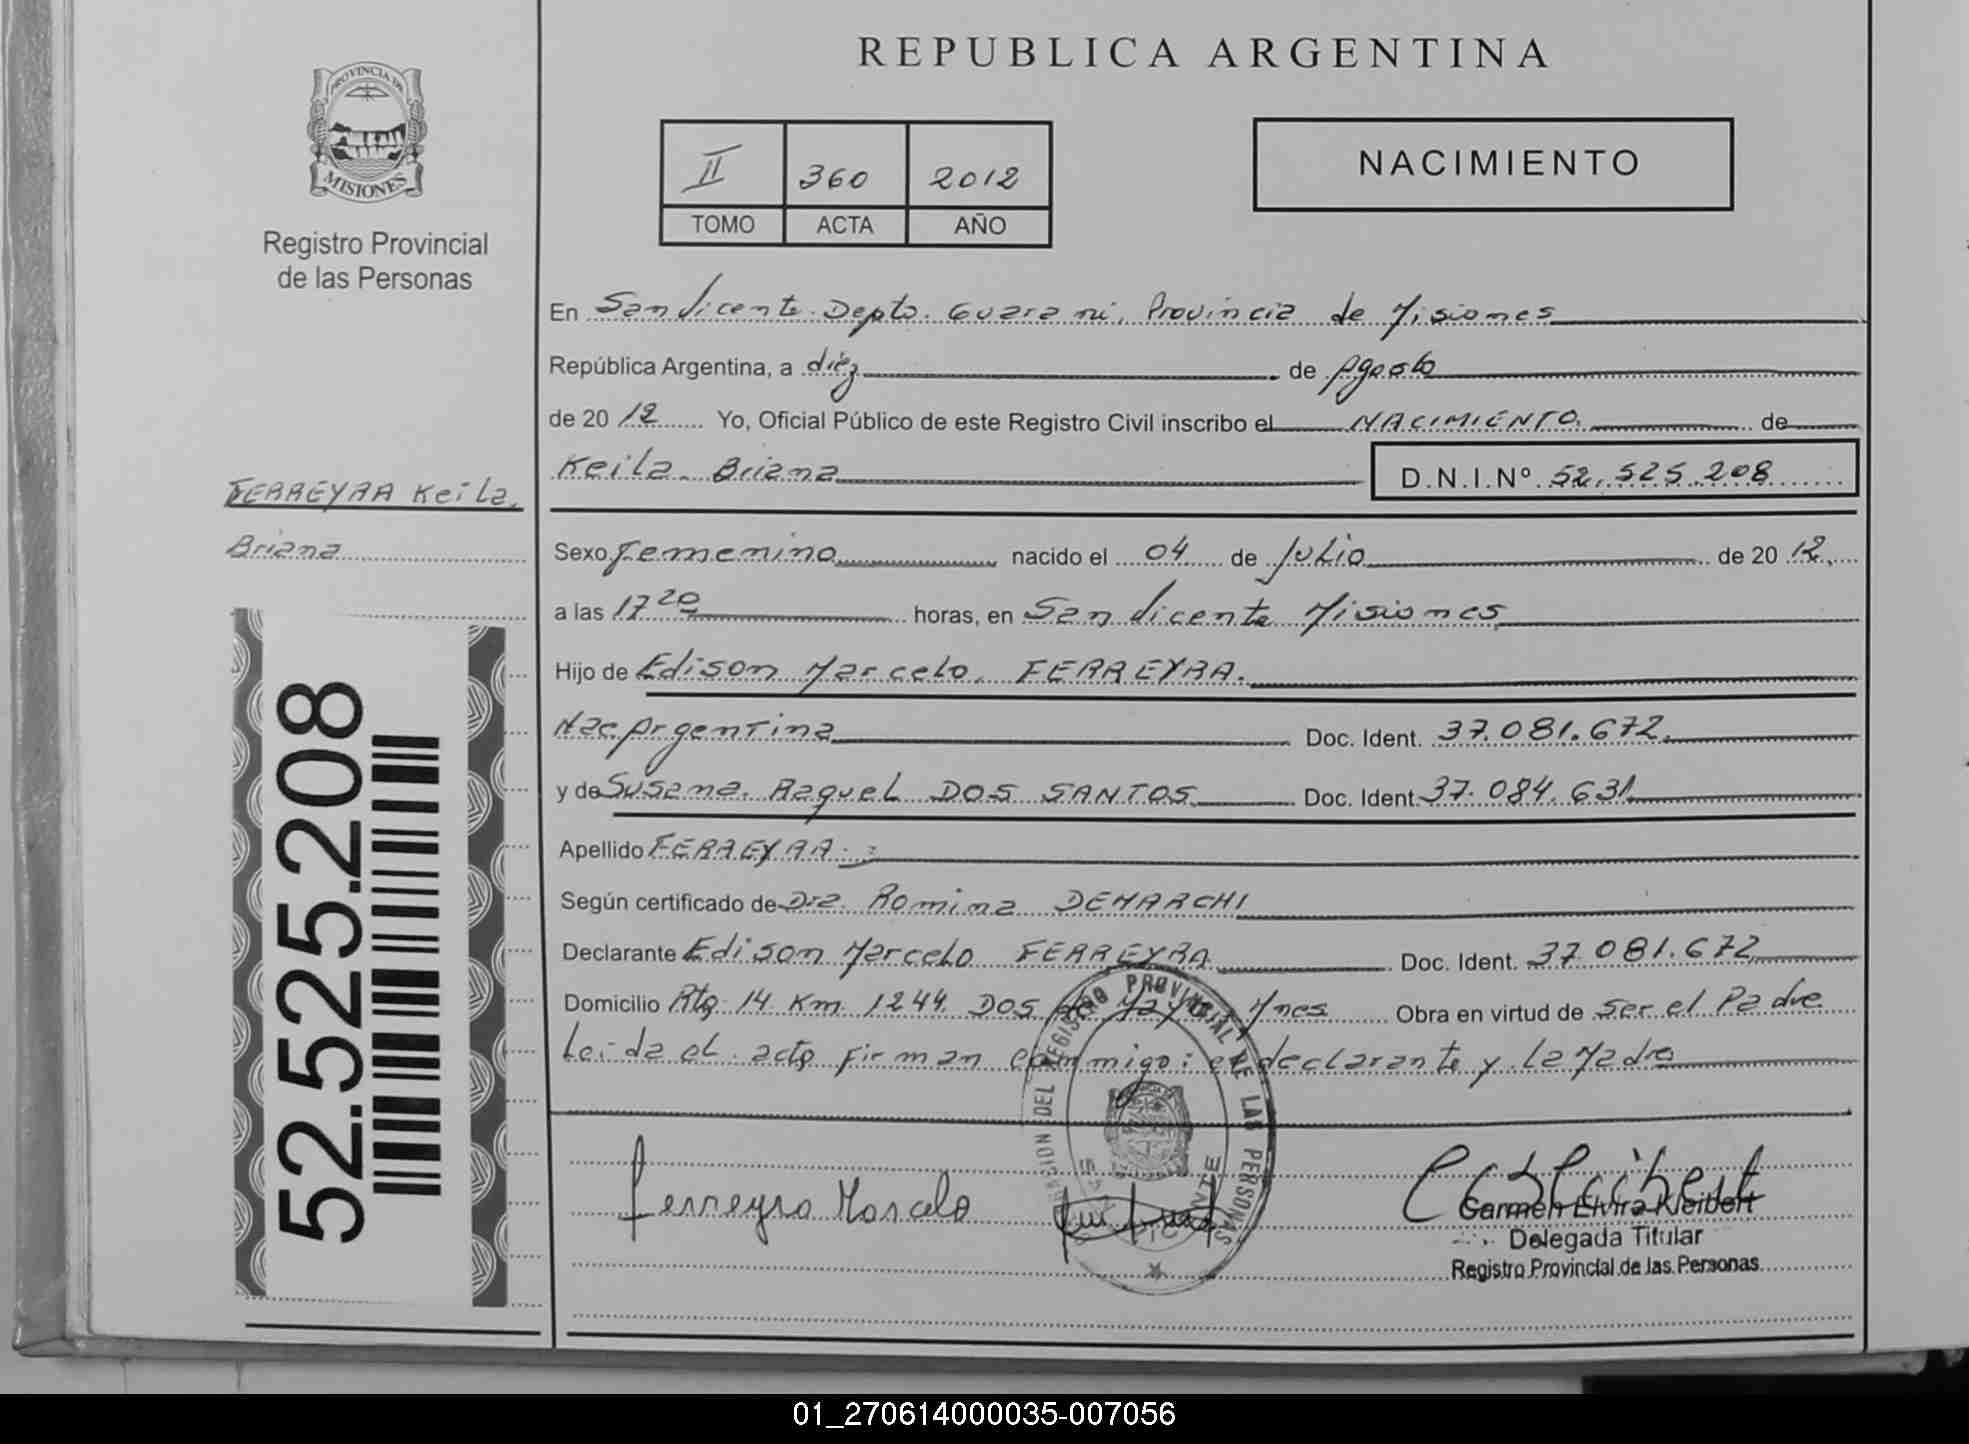 REPUBLICA ARGENTINA
PROVINCIA DE
MISIONES
Registro Provincial
de las Personas
II 360 2012
TOMO ACTA AÑO
NACIMIENTO
En San Vicente Depto. Guarani, Provincia de Misiones
República Argentina, a diez de Agosto
de 20 12 Yo, Oficial Público de este Registro Civil inscribo el NACIMIENTO de
Keila Briana D.N.I.Nº 52.525.208
FERREYRA Keila
Briana
Sexo Femenino nacido el 04 de Julio de 20 12
a las 17 20 horas, en San Vicente Misiones
Hijo de Edison Marcelo FERREYRA.
Nac Argentina Doc. Ident. 37.081.672
y de Susana Raquel DOS SANTOS Doc. Ident. 37.084.631
Apellido FERREYRA
Según certificado de Dra. Romina DEMARCHI
Declarante Edison Marcelo FERREYRA Doc. Ident. 37 081.672
Domicilio Rta 14 Km 1244 DOS de Mayo Mnes Obra en virtud de Ser el Padre
Leida el acta firman conmigo: el declarante y La Madre
52.525.208
REGISTRO PROVINCIAL DE LAS PERSONAS
Ferreyra Marcelo
Carmen Elvira Kleibert
Delegada Titular
Registro Provincial de las Personas
01_270614000035-007056